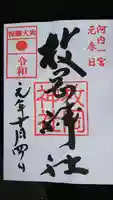 河内一宮
元春日
枚岡神社
枚岡
神社
令和
元年十月四日